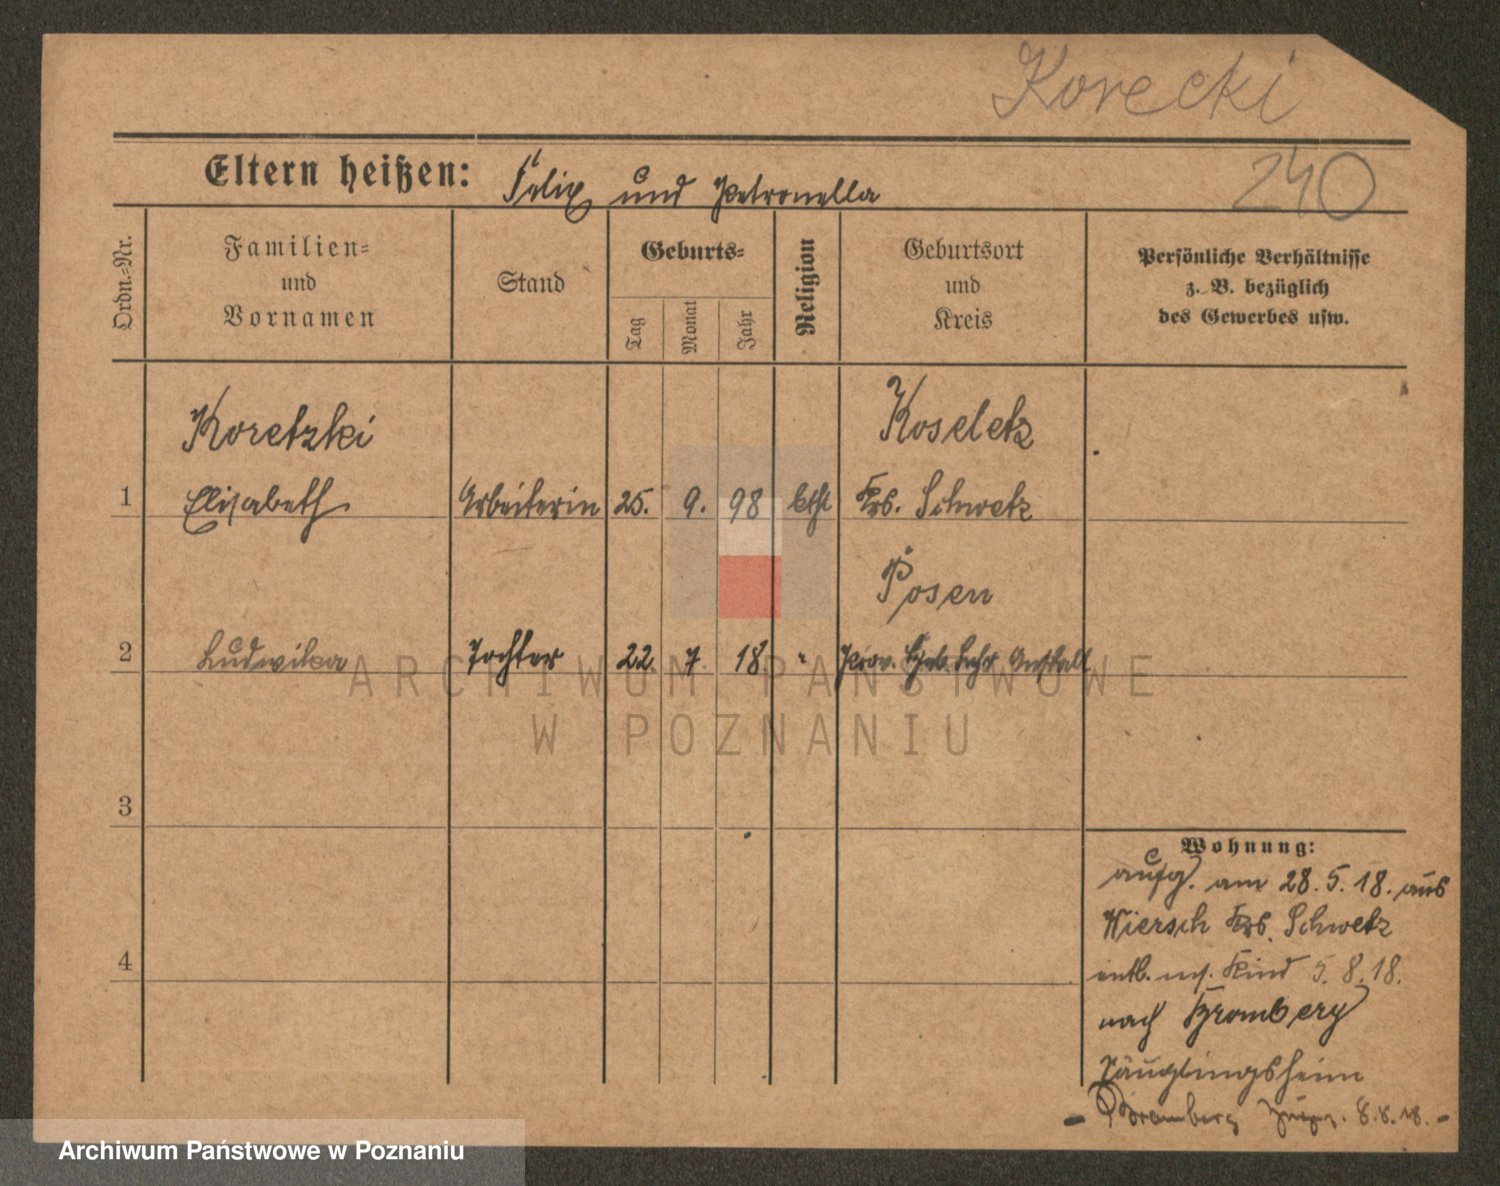 Korecki
240
Eltern heißen: Felix und Petronella
Ordn.-Nr.
Familien-
und
Vornamen
Stand
Geburts-
Tag
Monat
Jahr
Religion
Geburtsort
und
Kreis
Persönliche Verhältnisse
z. B. bezüglich
des Gewerbes usw.
Koretzki Koseletz
1 Elisabeth Arbeiterin 25. 9. 98 kthl Krs. Schwetz
Posen
2 Ludwika Tochter 22. 7. 18 " Prov. Heb. Lehr Anstalt
3
4
Wohnung:
aufg. am 28.5.18. aus
Wiersch Krs. Schwetz
entl. m. Kind 5.8.18.
nach Bromberg
Säuglingsheim
- Bromberg 8.8.18. -
ARCHIWUM PAŃSTWOWE
W POZNANIU
Archiwum Państwowe w Poznaniu